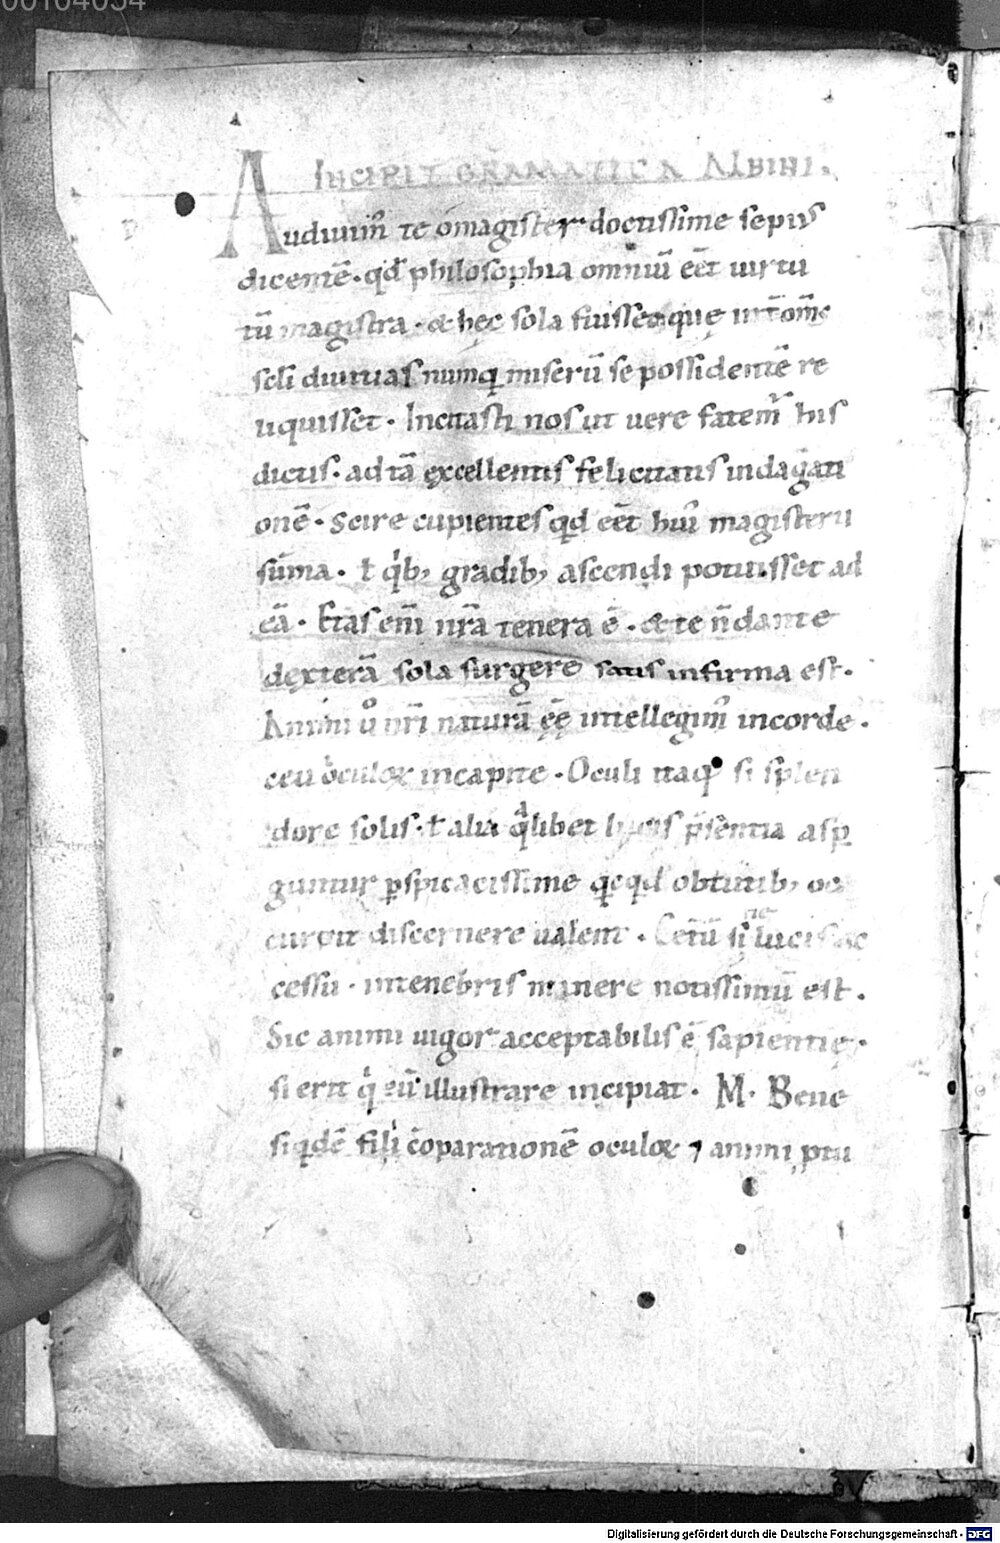 00104054
INCIPIT GRAMATICA ALBINI.
Audiuim᷒ te o magister doctissime sepius
dicentē. qđ philosophia omniū eēt uirtu
tū magistra. & hęc sola fuisset quę int̄ om̄s
scl̄i diuitias numq̄ miserū se possidentē re
liquisset. Incitasti nos ut uere fatem᷒ his
dictis. ad tā excellentis felicitatis indagati
onē. Scire cupientes qđ eēt hui᷒ magisterii
sūma. ł qͥb; gradib; ascendi potuisset ad
eā. Etas eni᷒m nr̄a tenera ē. & te n̄ dante
dexterā sola surgere satis infirma est.
Animi u᷒ nr̄i naturā ęę intellegim᷒ in corde.
ceu oculoꝝ in capite. Oculi itaq; si splen
dore solis. ł alia qᵃlibet lucis p̄sentia asp̄
guntur ꝑspicacissime qͥcqͥd obtutib; oc
currit discernere ualent. Cetu᷒ū sine lucis ac
cessu. in tenebris manere notissimū est.
Sic animi uigor acceptabilis ē sapientię.
si erit qͥ eū illustrare incipiat. M. Bene
siqͥdē filii cōparationē oculoꝝ ⁊ animi ptu
Digitalisierung gefördert durch die Deutsche Forschungsgemeinschaft - DFG